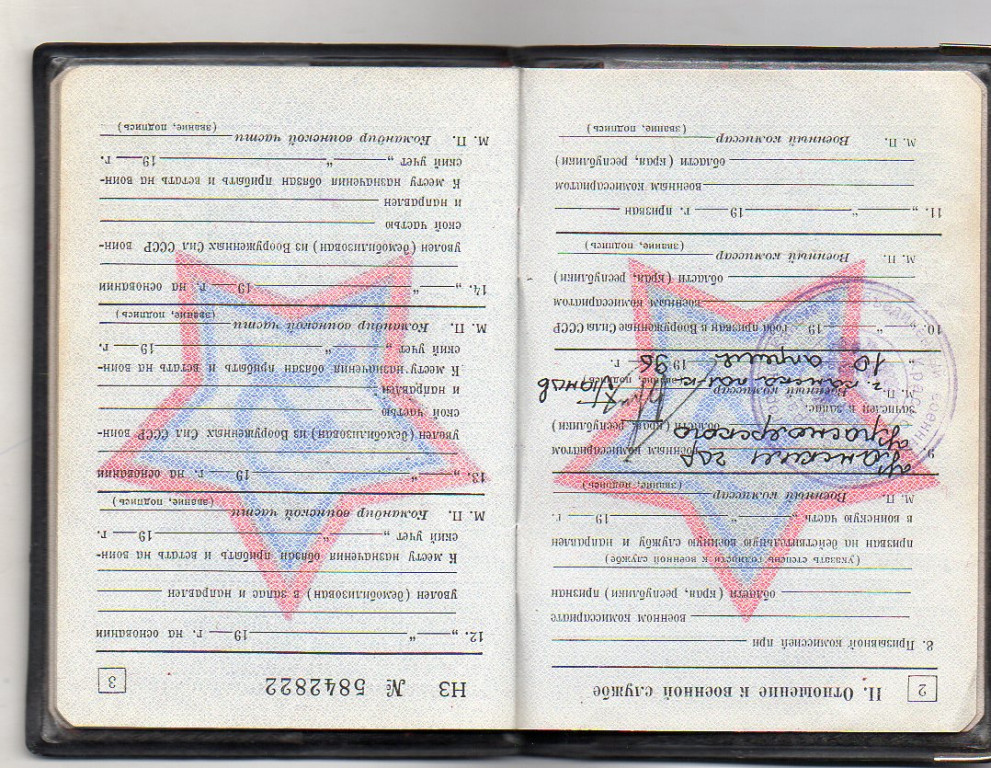 2
II. Отношение к военной службе
8. Призывной комиссией при
военном комиссариате
области (края, республики) признан
(указать степень годности к военной службе)
призван на действительную военную службу и направлен
в воинскую часть „ “ 19 г.
М. П. Военный комиссар
(звание, подпись)
9. Канским гор
военным комиссариатом
Красноярского
области (края, республики)
зачислен в запас.
М. П. Военный комиссар
г. Канска
(звание, подпись)
„ 10 “ апреля 1996 г.
10. „ “ 19 года призван в Вооруженные Силы СССР
военным комиссариатом
области (края, республики)
М. П. Военный комиссар
(звание, подпись)
11. „ “ 19 г. призван
военным комиссариатом
области (края, республики)
М. П. Военный комиссар
(звание, подпись)
НЗ № 5842822
3
12. „ “ 19 г. на основании
уволен (демобилизован) в запас и направлен
К месту назначения обязан прибыть и встать на воин-
ский учет „ “ 19 г.
М. П. Командир воинской части
(звание, подпись)
13. „ “ 19 г. на основании
уволен (демобилизован) из Вооруженных Сил СССР воин-
ской частью
и направлен
К месту назначения обязан прибыть и встать на воин-
ский учет „ “ 19 г.
М. П. Командир воинской части
(звание, подпись)
14. „ “ 19 г. на основании
уволен (демобилизован) из Вооруженных Сил СССР воин-
ской частью
и направлен
К месту назначения обязан прибыть и встать на воин-
ский учет „ “ 19 г.
М. П. Командир воинской части
(звание, подпись)